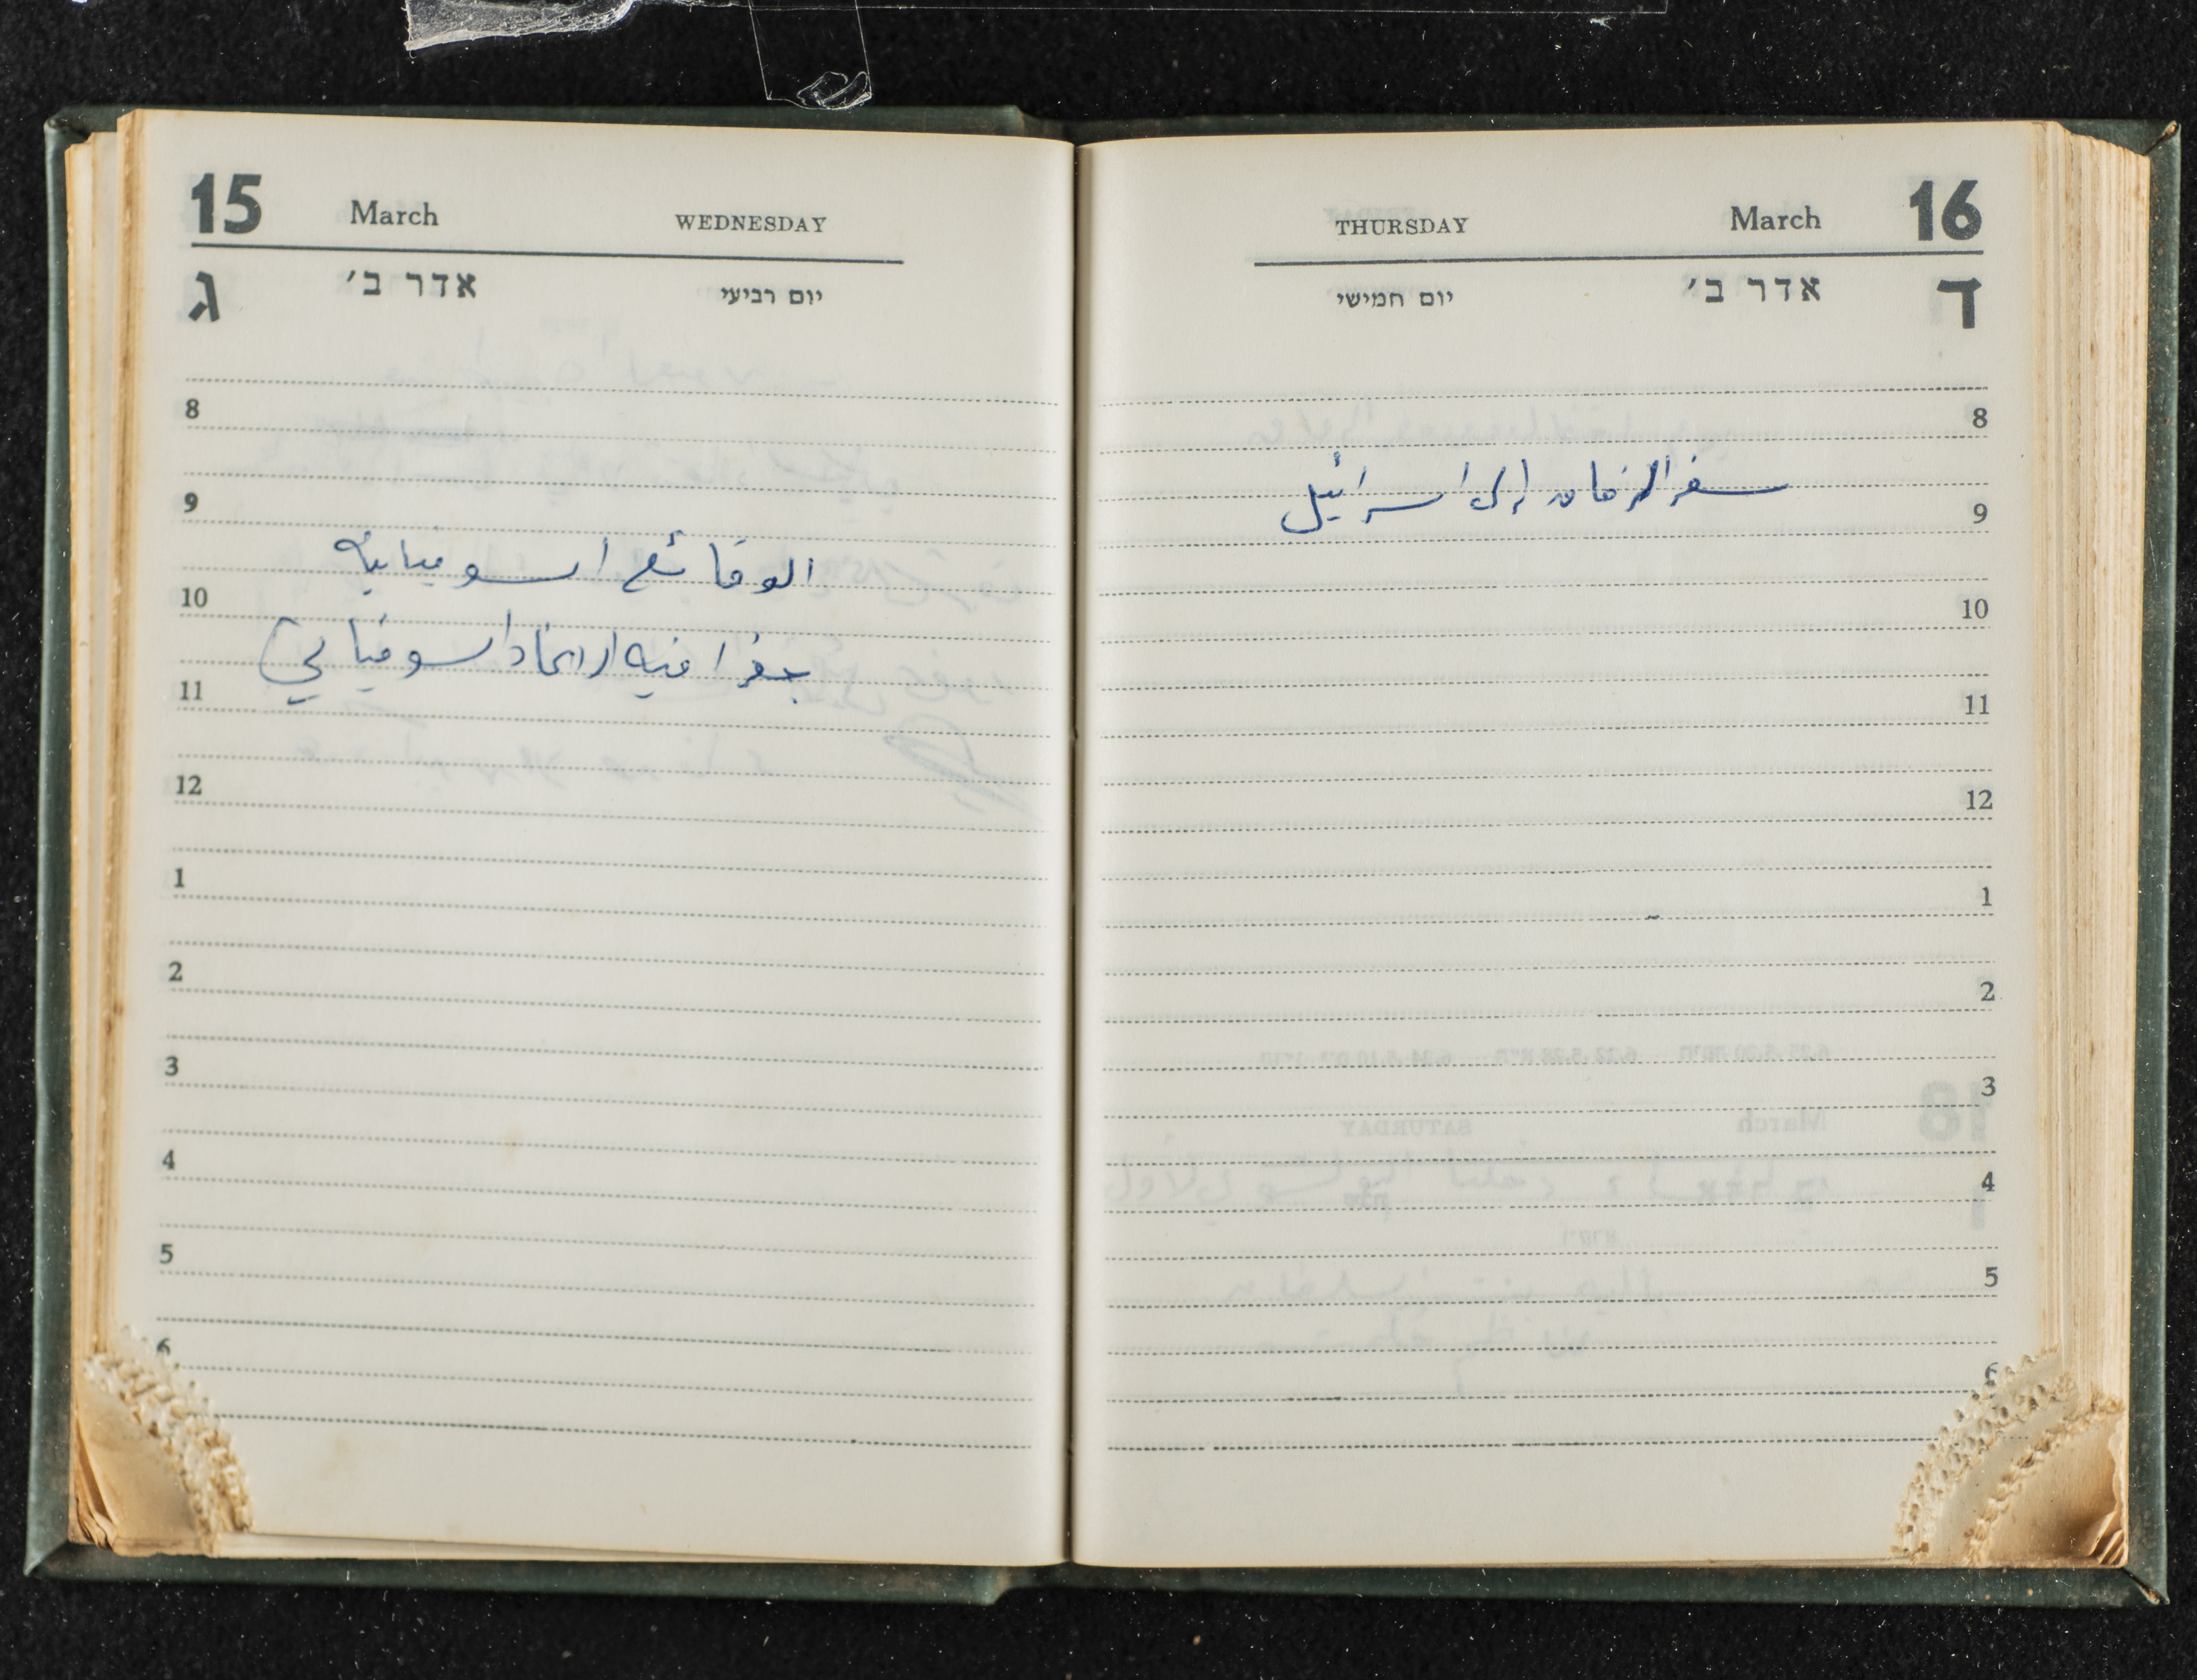 15 March WEDNESDAY
ג אדר ב׳ יום רביעי
8
9
الوقائع السوفياتية
10
جغرافيه الاتحاد السوفياتي
11
12
1
2
3
4
5
6
THURSDAY March 16
יום חמישי אדר ב׳ ד
8
سفر الرفاق إلى اسرائيل
9
10
11
12
1
2
3
4
5
6